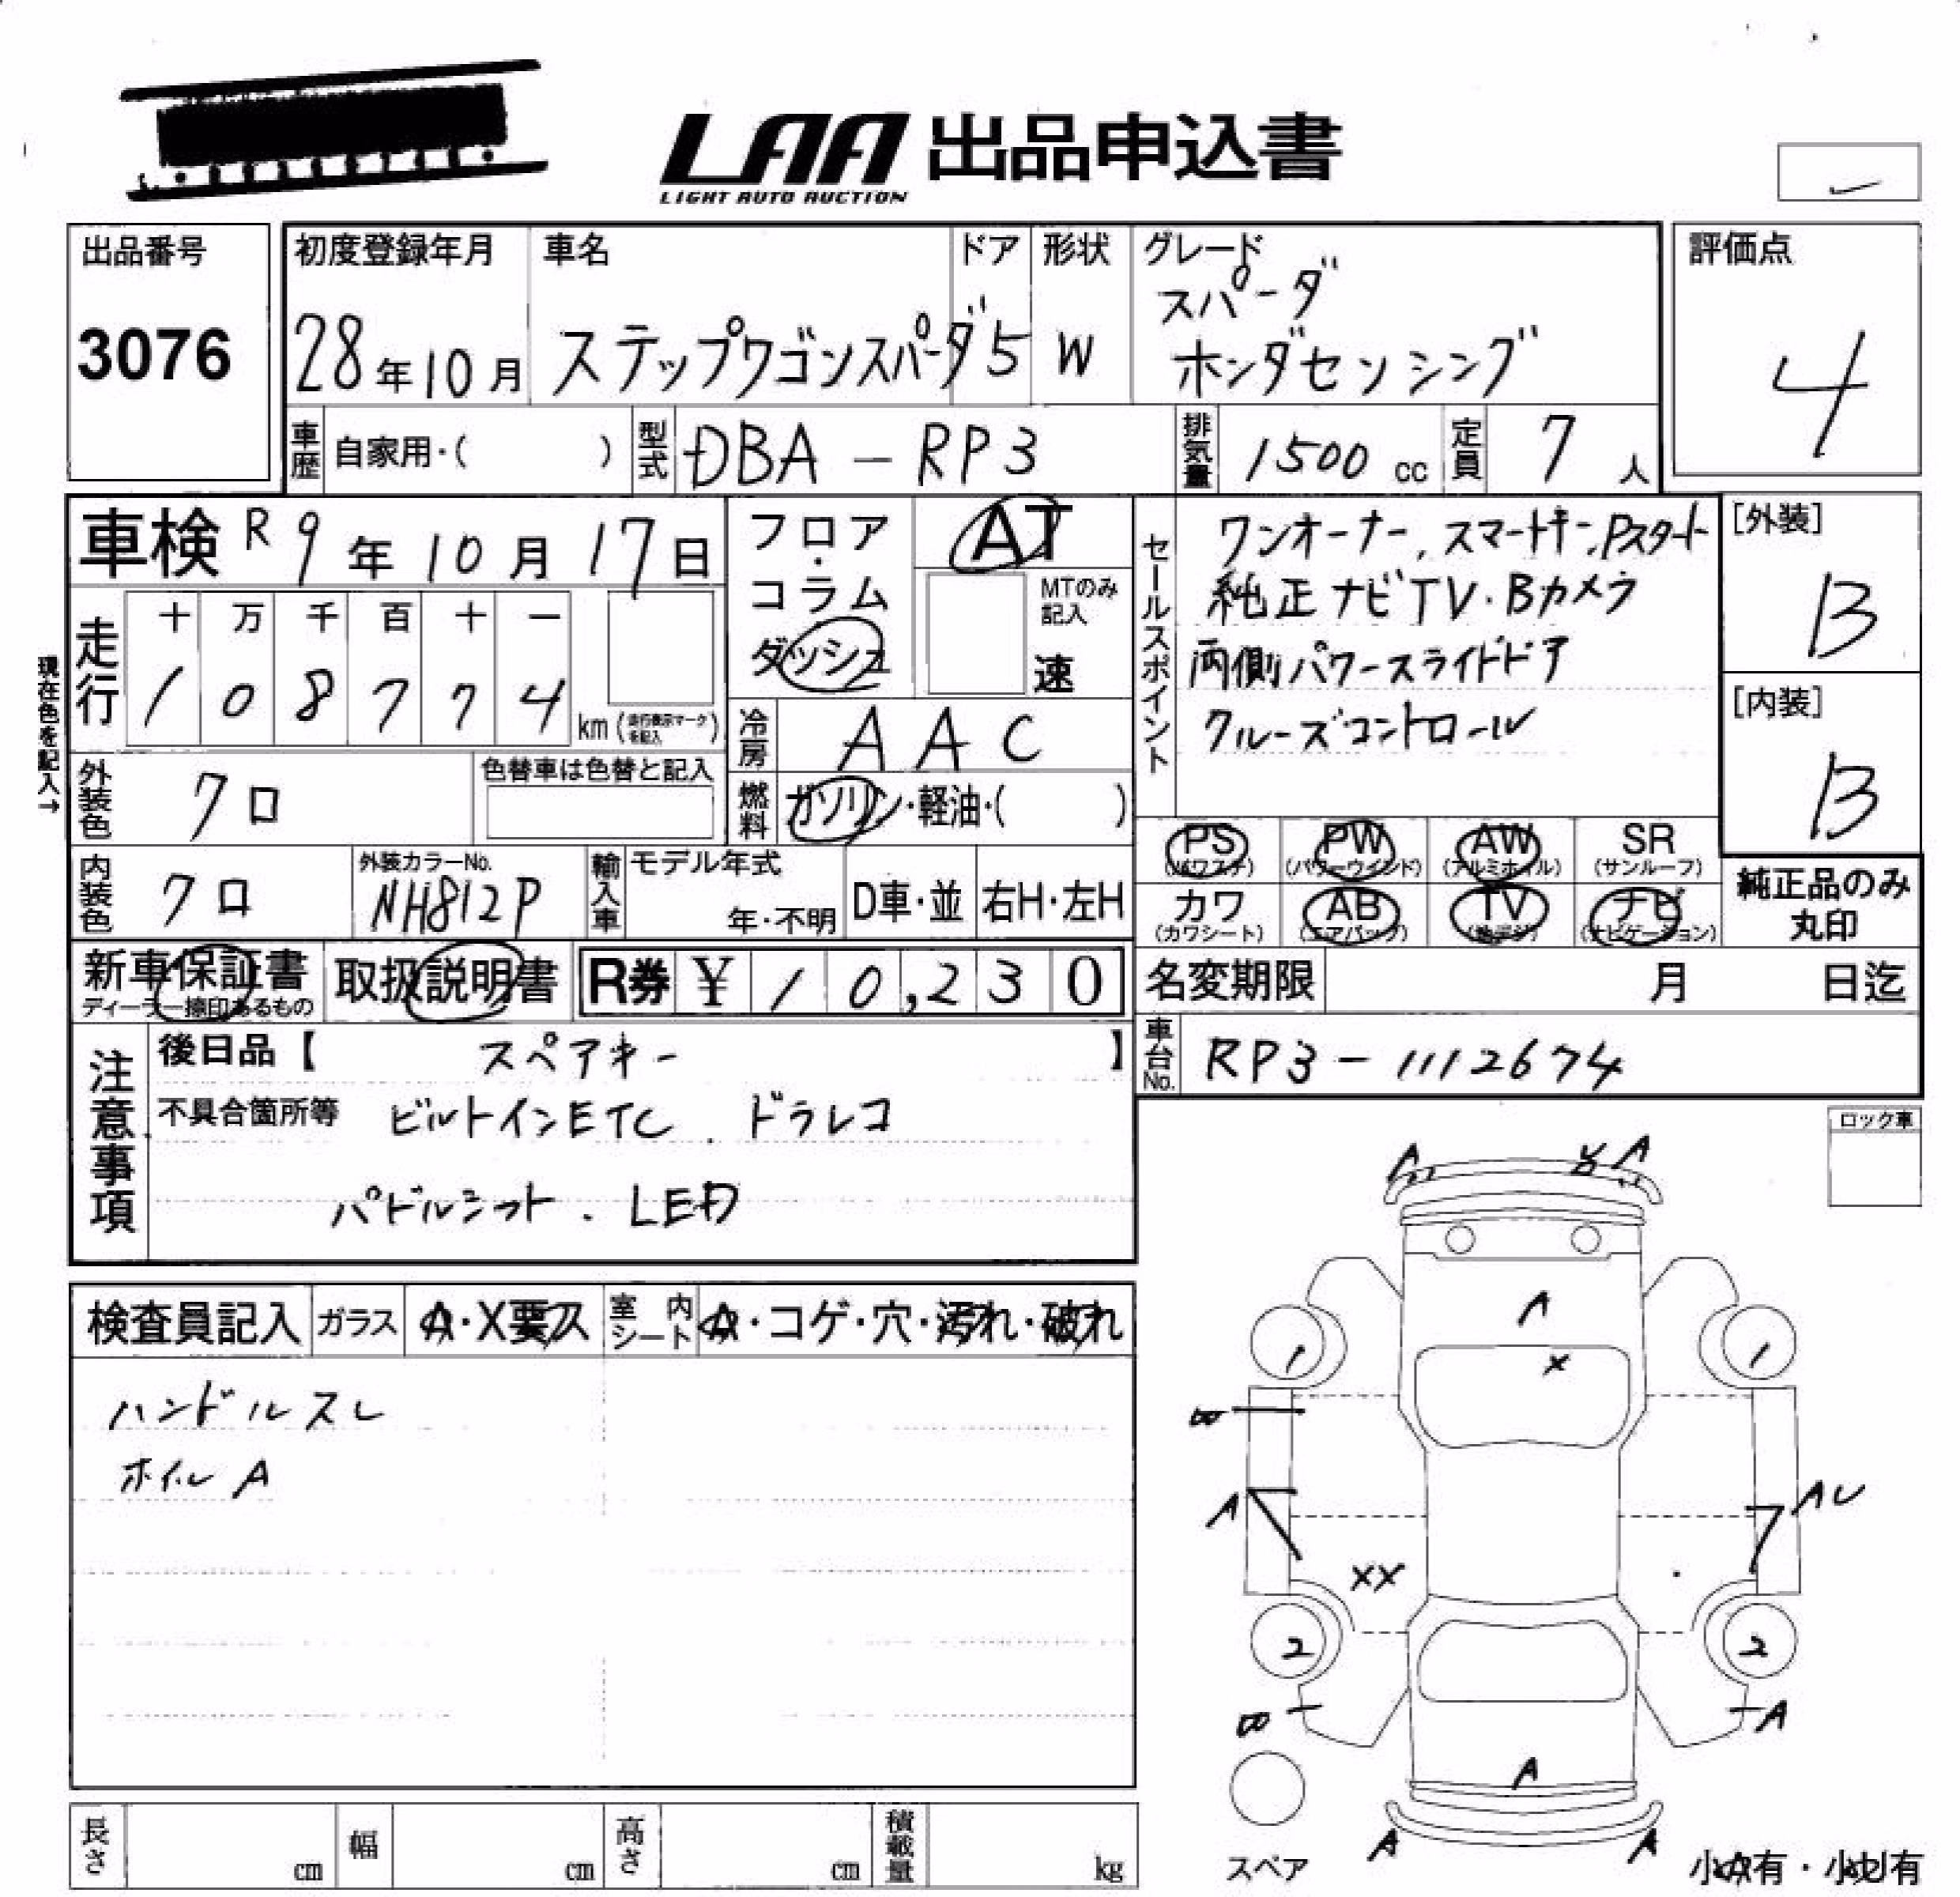 LAA 出品申込書
LIGHT AUTO AUCTION
出品番号
3076
初度登録年月
28年10月
車名
ステップワゴンスパーダ
ドア
5
形状
W
グレード
スパーダ
ホンダセンシング
評価点
4
車歴 自家用・( )
型式 DBA-RP3
排気量 1500cc
定員 7人
車検 R9年10月17日
現在色を記入→
走行
十 万 千 百 十 一
1 0 8 7 7 4 km (走行表示マークを記入)
フロア・コラム
ダッシュ
AT
MTのみ記入
速
冷房 AAC
燃料 ガソリン・軽油・( )
外装色 クロ
色替車は色替と記入
内装色 クロ
外装カラーNo.
NH812P
輸入車 モデル年式
年・不明
D車・並
右H・左H
セールスポイント
ワンオーナー、スマートキー、Pスタート
純正ナビTV・Bカメラ
両側パワースライドドア
クルーズコントロール
[外装]
B
[内装]
B
PS (パワステ)
PW (パワーウインド)
AW (アルミホイル)
SR (サンルーフ)
カワ (カワシート)
AB (エアバッグ)
TV (地デジ)
ナビ (ナビゲーション)
純正品のみ丸印
新車保証書
ディーラー捺印あるもの
取扱説明書
R券 ¥10,230
名変期限 月 日迄
車台No. RP3-1112674
注意事項
後日品【 スペアキー 】
不具合箇所等 ビルトインETC . ドラレコ
パドルシフト . LED
ロック車
検査員記入
ガラス A・X要ス
室内シート A・コゲ・穴・汚れ・破れ
ハンドルスレ
ホイルA
A A
A
X
1 1
A
AU
XX
2 2
A
A
A A
スペア
小A有・小U有
長さ cm
幅 cm
高さ cm
積載量 kg